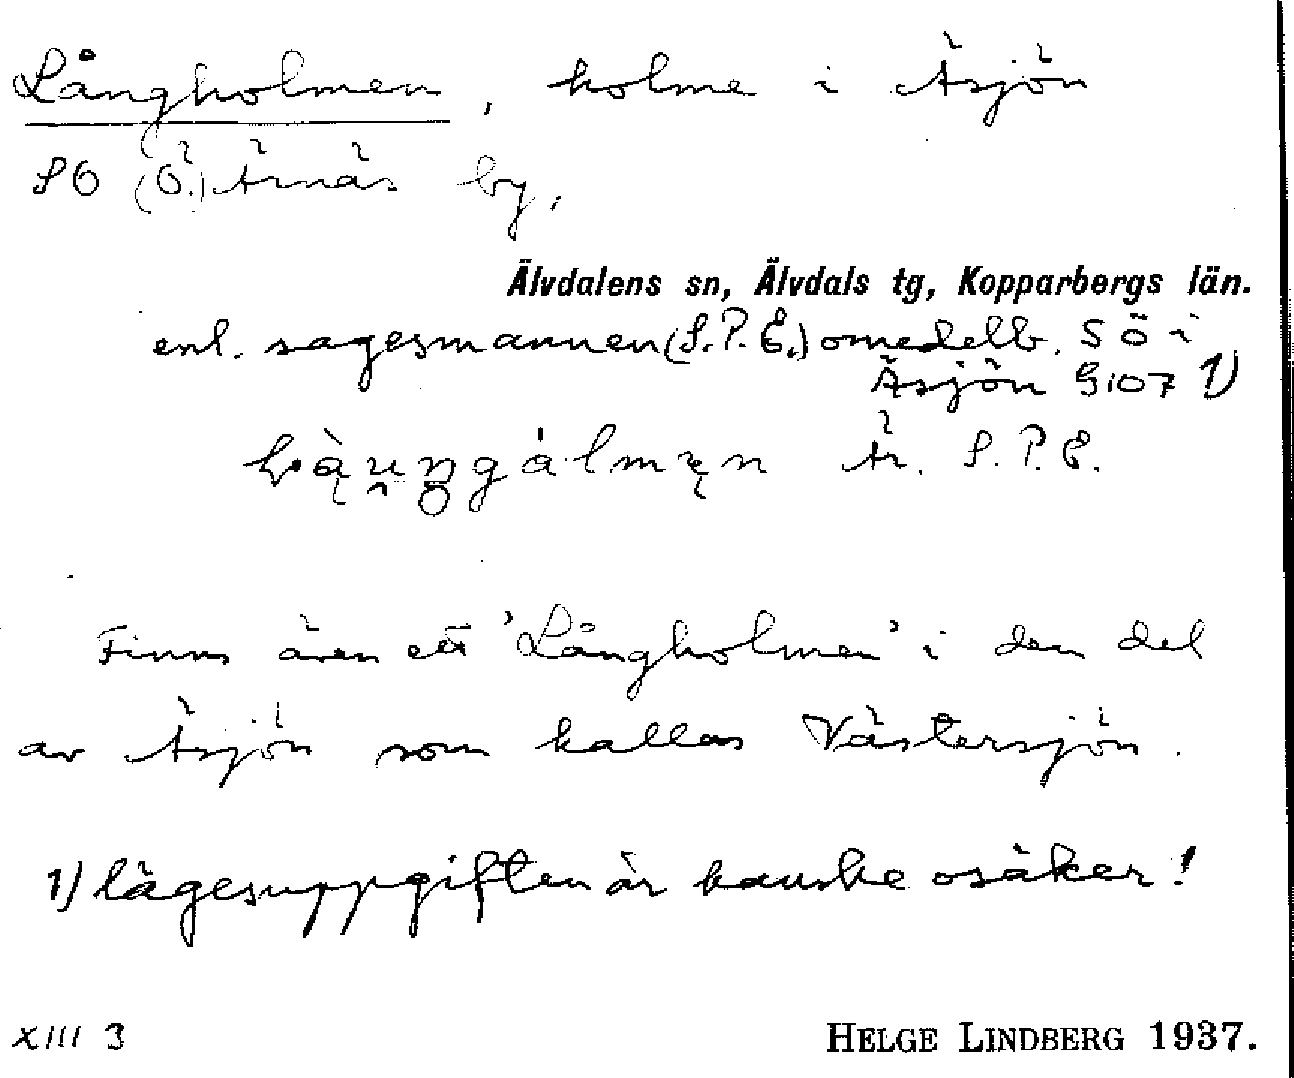 Långholmen, holme i Äsjön
SO (Ö.) Ärnäs by.
Älvdalens sn, Älvdals tg, Kopparbergs län.
enl. sagesmannen (S.P.E.) omedelb. S ö i
Äsjön G107 1)
Är. S.P.E.
Finns även ett 'Långholmen' i den del
av Äsjön som kallas Västersjön.
1) lägesuppgiften är kanske osäker!
XIII 3
HELGE LINDBERG 1937.